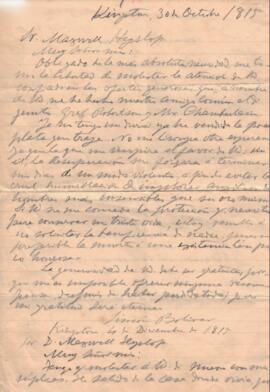 Kingston, 30 de Octubre / 1815
Sr. Maxwell Hyslop
Muy señor mio:
Obligado de la mas absoluta necesidad me tomo
la libertad de molestar la atencion de V.
confiado en las ofertas generosas que a nombre
de V. me ha hecho nuestro amigo comun el
Robertson y Mr. Chamberlain
Ya no tengo un duro; ya he vendido la poca
plata que traje. No me otra esperanza
que la que me inspira el favor de V. Sin
él, la desesperacion me forzará a terminar
mis dias de un modo violento, a fin de evitar la
cruel humillacion de auxilios de
hombres mas insensibles que su oro mismo.
Si V. no me concede la proteccion que necesito
para conservar mi triste vida, estoy resuelto a
no solicitar la beneficencia de nadie, pues es
preferible la muerte a una existencia tan
poco honrosa.
La generosidad de V. debe ser gratuita, porque
me es imposible ofrecer ninguna recompensa,
despues de haber perdido todo; pero
mi gratitud será eterna.
Simón Bolívar
Kingston 4 de Diciembre de 1815
Sr. D. Maxwell Hyslop
Muy señor mio:
Tengo que molestar a V. de nuevo con mis
suplicas. He salido de la casa donde vivia